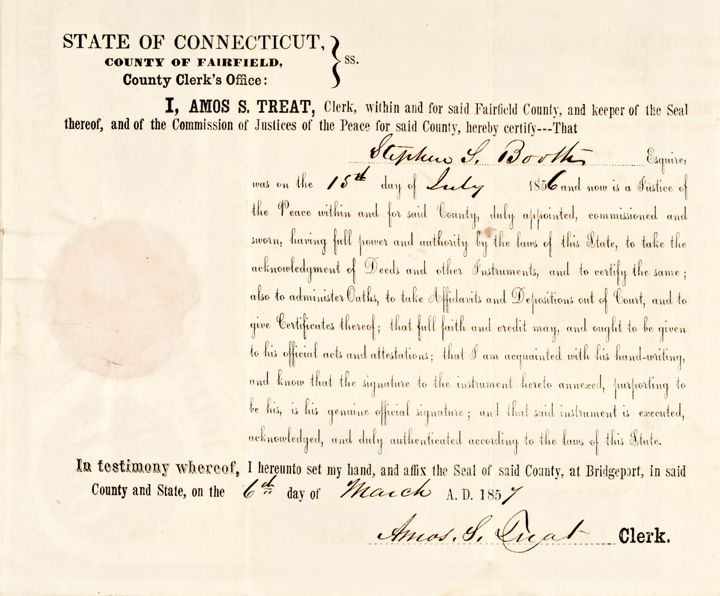 STATE OF CONNECTICUT,
COUNTY OF FAIRFIELD,
County Clerk's Office:
} ss.
I, AMOS S. TREAT, Clerk, within and for said Fairfield County, and keeper of the Seal
thereof, and of the Commission of Justices of the Peace for said County, hereby certify---That
Stephen S. Booth Esquire,
was on the 15th day of July 1856 and now is a Justice of
the Peace within and for said County, duly appointed, commissioned and
sworn, having full power and authority by the laws of this State, to take the
acknowledgment of Deeds and other Instruments, and to certify the same;
also to administer Oaths, to take Affidavits and Depositions out of Court, and to
give Certificates thereof; that full faith and credit may, and ought to be given
to his official acts and attestations; that I am acquainted with his hand-writing,
and know that the signature to the instrument hereto annexed, purporting to
be his, is his genuine official signature; and that said instrument is executed,
acknowledged, and duly authenticated according to the laws of this State.
In testimony whereof, I hereunto set my hand, and affix the Seal of said County, at Bridgeport, in said
County and State, on the 6th day of March A. D. 1857
Amos. S. Treat Clerk.